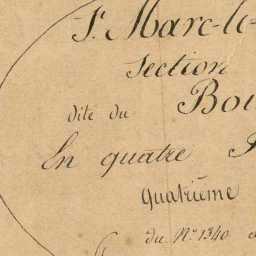 St. Marc-le-
Section
dite du Bou
En quatre
Quatrième
du No. 1340